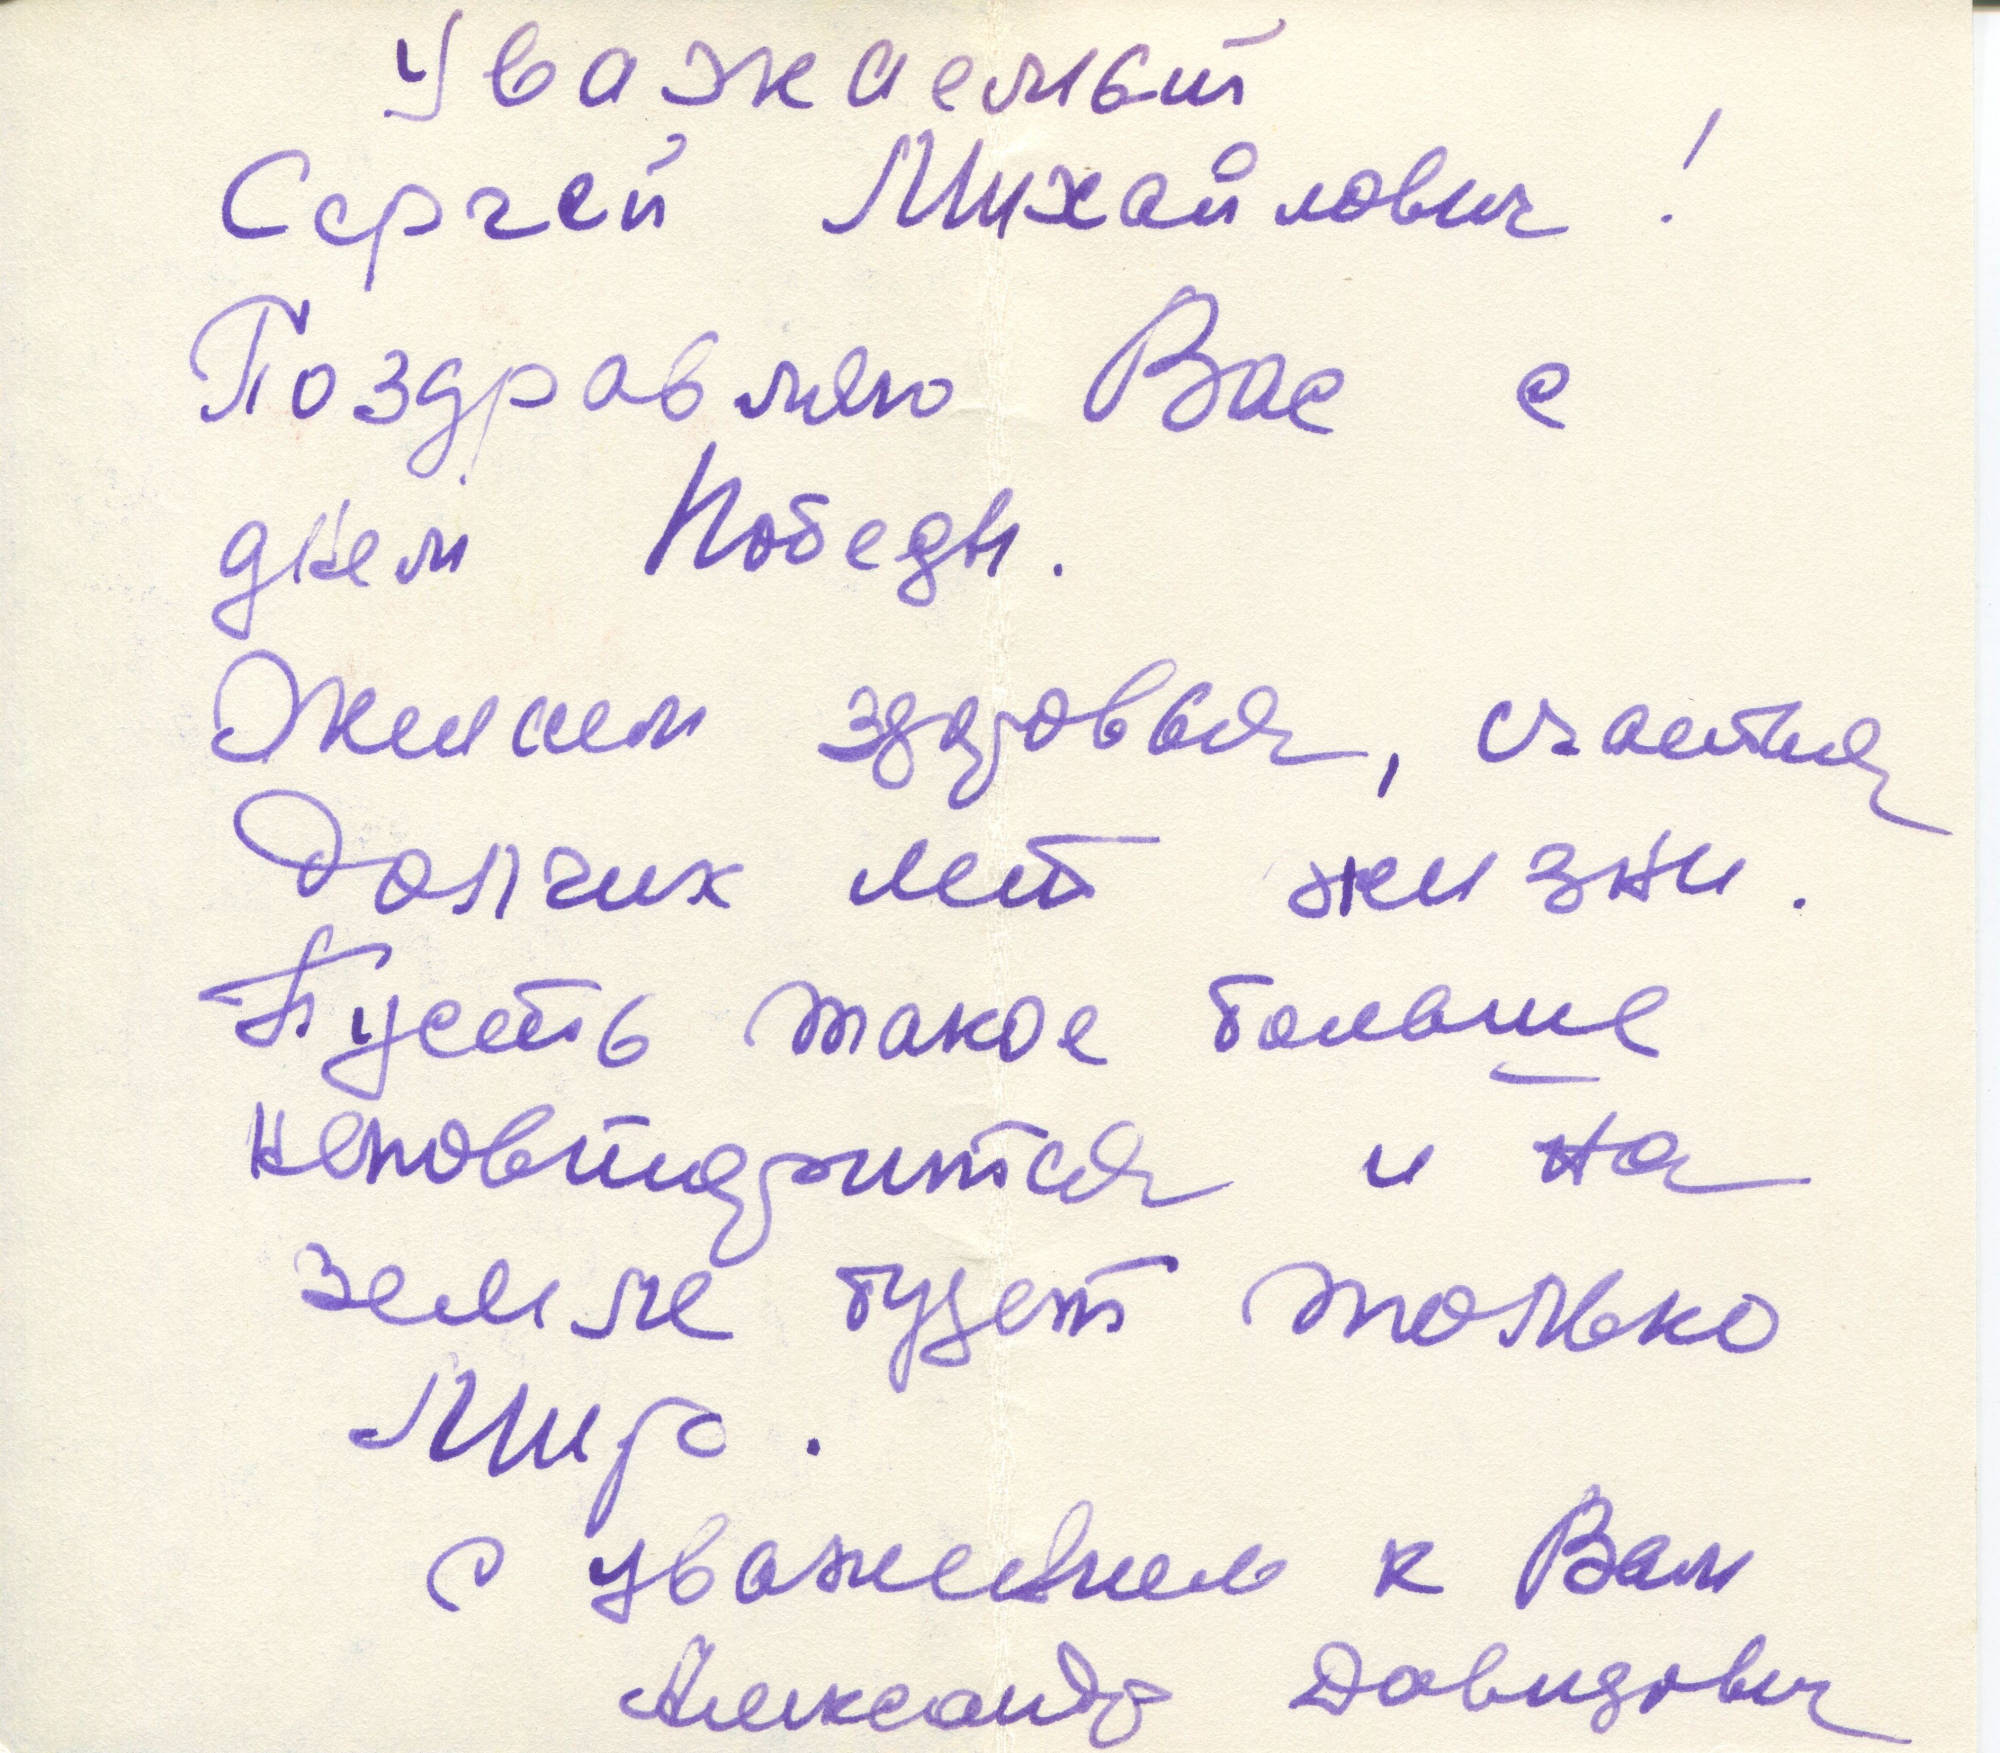 Уважаемый
Сергей Михайлович!
Поздравляю Вас с
днем Победы.
Желаем здоровья, счастия
Долгих лет жизни.
Пусть такое больше
неповторится и на
земле будет только
Мир.
С уважением к Вам
Александр Давидович